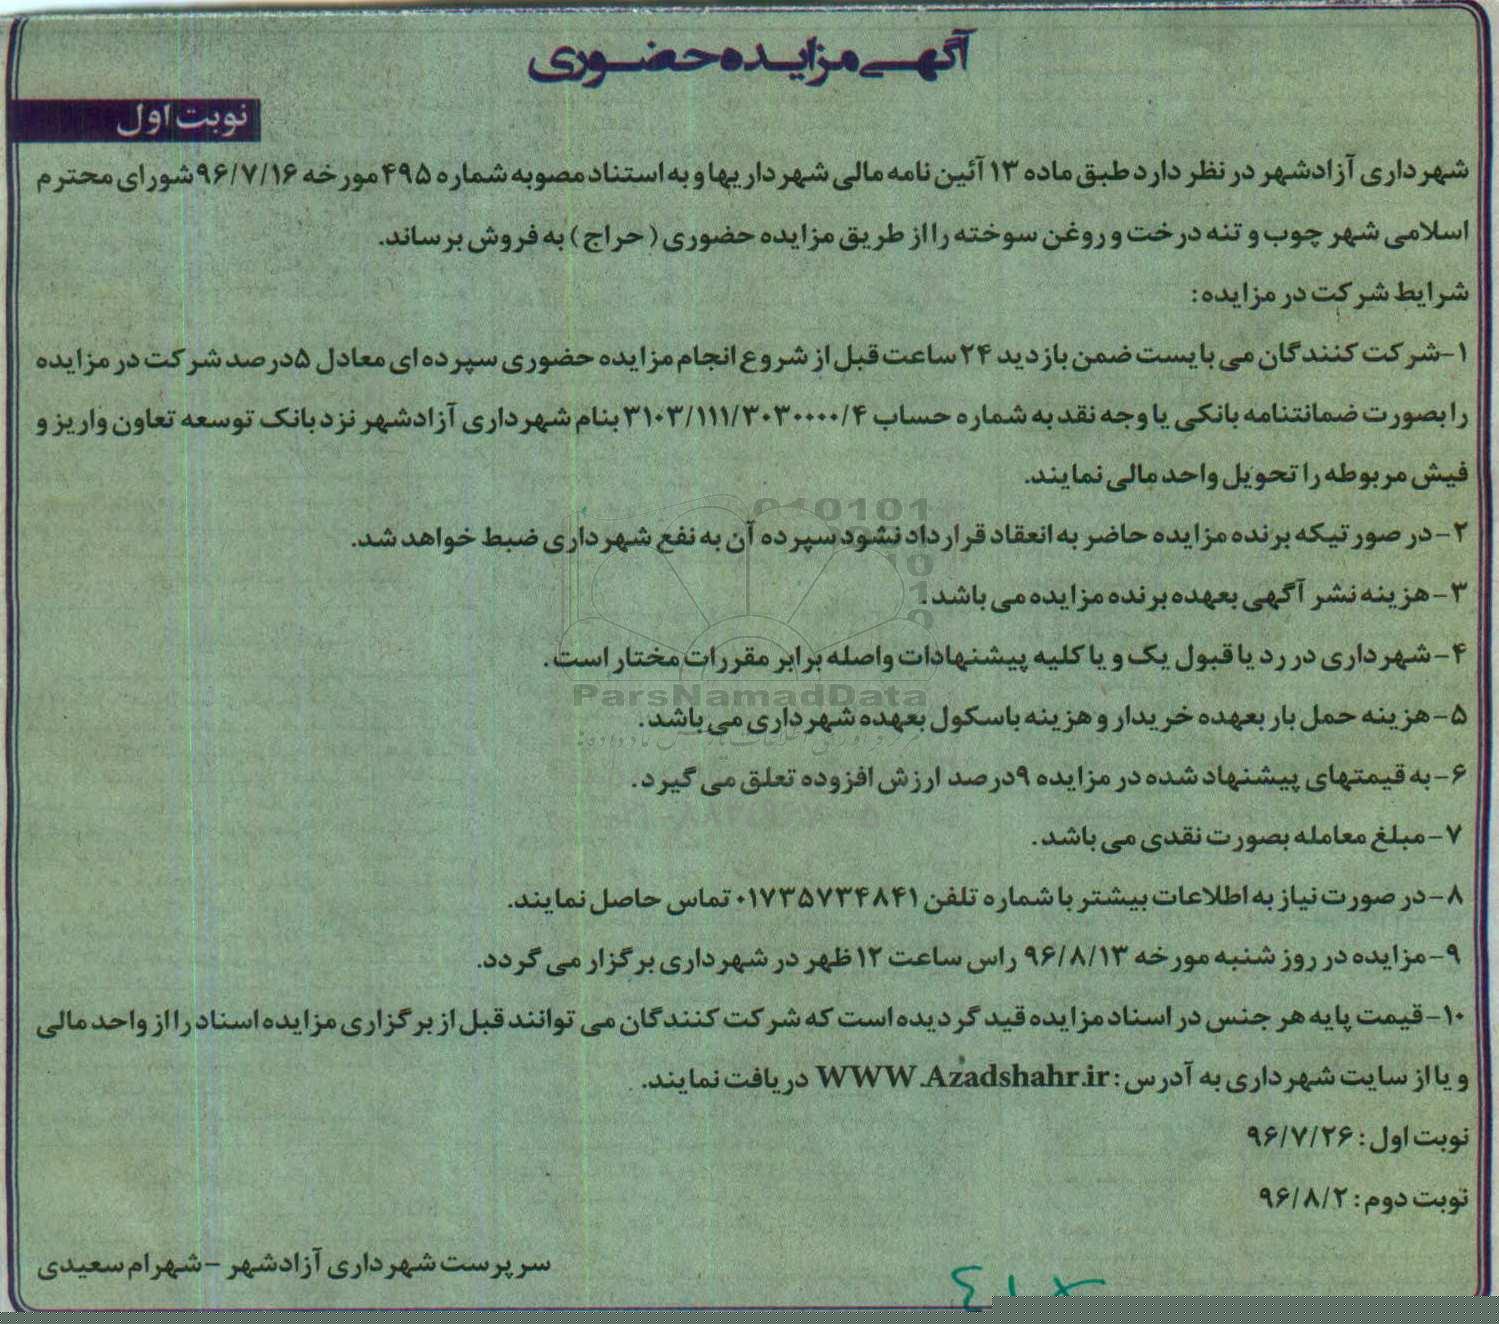 آگهی مزایده حضوری
نوبت اول
شهرداری آزادشهر در نظر دارد طبق ماده ۱۳ آئین نامه مالی شهرداریها و به استناد مصوبه شماره ۴۹۵ مورخه ۹۶/۷/۱۶ شورای محترم
اسلامی شهر چوب و تنه درخت و روغن سوخته را از طریق مزایده حضوری (حراج) به فروش برساند.
شرایط شرکت در مزایده:
۱-شرکت کنندگان می بایست ضمن بازدید ۲۴ ساعت قبل از شروع انجام مزایده حضوری سپرده ای معادل ۵درصد شرکت در مزایده
را بصورت ضمانتنامه بانکی یا وجه نقد به شماره حساب ۳۱۰۳/۱۱۱/۳۰۳۰۰۰۰/۴ بنام شهرداری آزادشهر نزد بانک توسعه تعاون واریز و
فیش مربوطه را تحویل واحد مالی نمایند.
۲-در صورتیکه برنده مزایده حاضر به انعقاد قرارداد نشود سپرده آن به نفع شهرداری ضبط خواهد شد.
۳-هزینه نشر آگهی بعهده برنده مزایده می باشد.
۴-شهرداری در رد یا قبول یک و یا کلیه پیشنهادات واصله برابر مقررات مختار است.
ParsNamadData
۵-هزینه حمل بار بعهده خریدار و هزینه باسکول بعهده شهرداری می باشد.
۶-به قیمتهای پیشنهاد شده در مزایده ۹درصد ارزش افزوده تعلق می گیرد.
۷-مبلغ معامله بصورت نقدی می باشد.
۸-در صورت نیاز به اطلاعات بیشتر با شماره تلفن ۰۱۷۳۵۷۳۴۸۴۱ تماس حاصل نمایند.
۹-مزایده در روز شنبه مورخه ۹۶/۸/۱۳ راس ساعت ۱۲ ظهر در شهرداری برگزار می گردد.
۱۰-قیمت پایه هر جنس در اسناد مزایده قید گردیده است که شرکت کنندگان می توانند قبل از برگزاری مزایده اسناد را از واحد مالی
و یا از سایت شهرداری به آدرس: WWW.Azadshahr.ir دریافت نمایند.
نوبت اول: ۹۶/۷/۲۶
نوبت دوم: ۹۶/۸/۲
سرپرست شهرداری آزادشهر -شهرام سعیدی